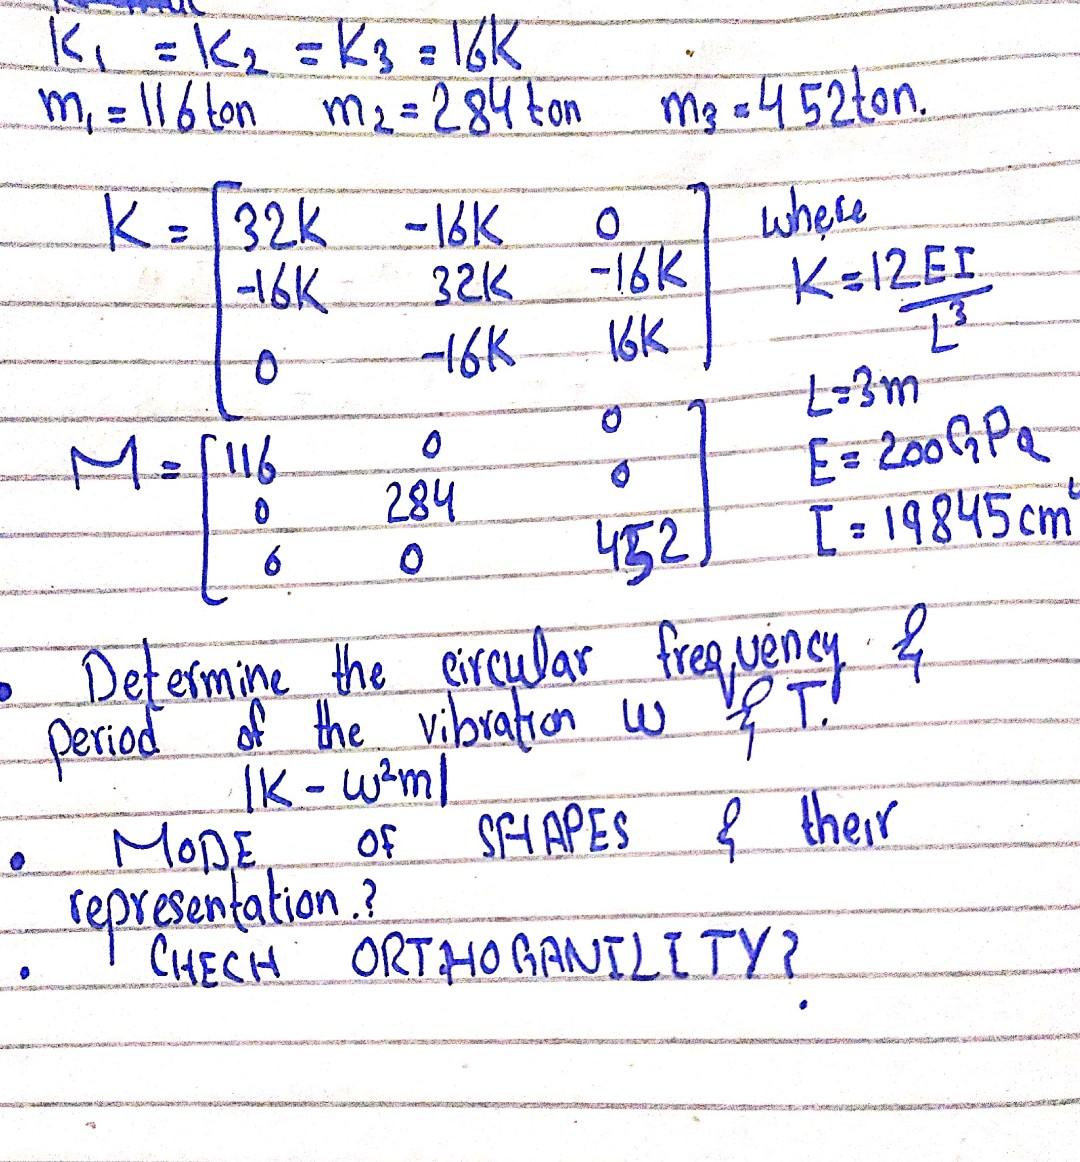 K₁ = K₂ = K₃ = 16K
m₁ = 116 ton m₂ = 284 ton m₃ = 452 ton.
K = [ 32K -16K 0
-16K 32K -16K
0 -16K 16K ]
where
K = 12EI / L³
L = 3m
E = 200 GPa
I = 19845 cm
M = [ 116 0 0
0 284 0
0 0 452 ]
• Determine the circular frequency &
period of the vibration ω & T.
|K - ω²m|
• MODE OF SHAPES & their
representation.?
• CHECH ORTHOGANILITY?